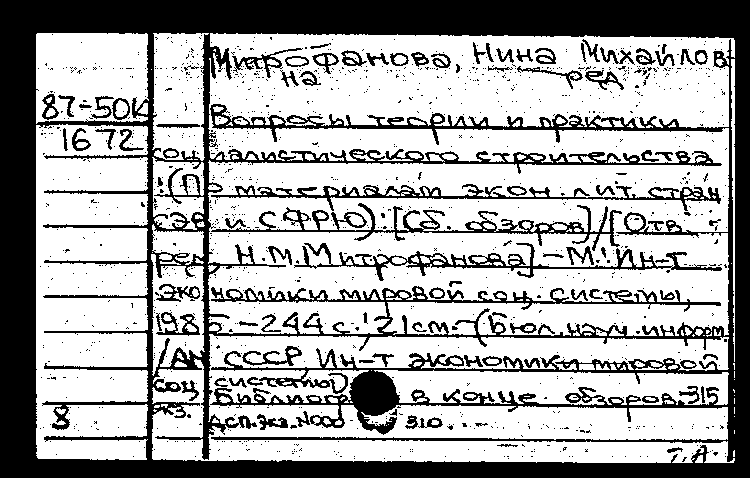 Митрофанова, Нина Михайлов-
на ред.
87-50К
1672
Вопросы теории и практики
социалистического строительства
:(По материалам экон. лит. стран
СЭВ и СФРЮ):[Сб. обзоров]/[Отв.
ред. Н.М.Митрофанова]-М.:Ин-т
экономики мировой соц. системы,
1985.-244 с.;21см.-(Бюл.науч.информ.
/АН СССР, Ин-т экономики мировой
соц. системы)
Библиогр в конце обзоров.-315
экз. ДСП.Экз.N000 310.
8
Т.А.